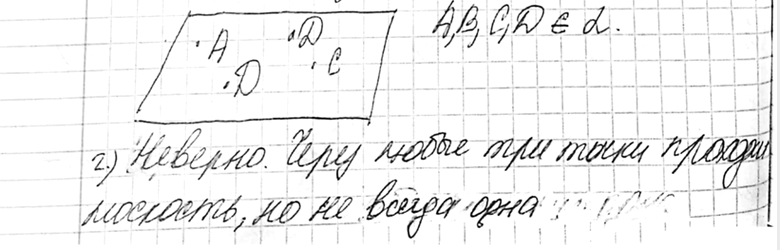 A,B,C,D ∈ α.
·A ·D
·D ·C
г.) Неверно. Через любые три точки проходи
плоскость, но не всегда одна